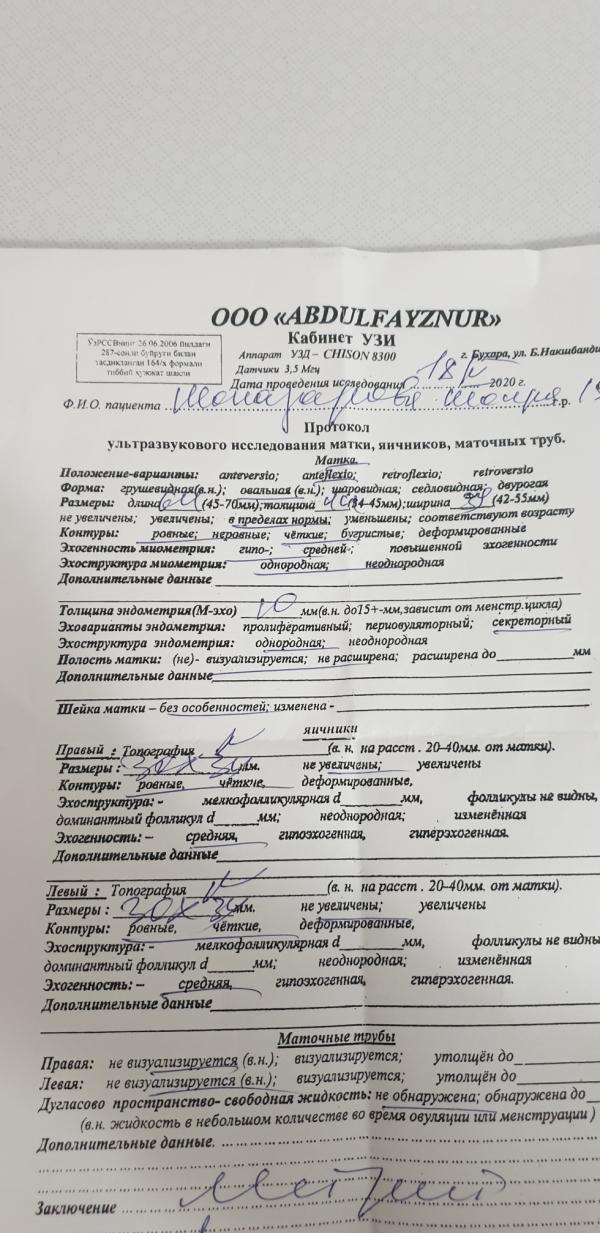 ООО «ABDULFAYZNUR»
Кабинет УЗИ
ЎзРССВнинг 26.06.2006 йилдаги
287-сонли буйруғи билан
тасдиқланган 164/х формали
тиббий ҳужжат шакли
Аппарат УЗД – CHISON 8300
г. Бухара, ул. Б.Накшбанди
Датчики 3,5 Мгц
Дата проведения исследования 18 2020 г.
Ф.И.О. пациента г.р.
Протокол
ультразвукового исследования матки, яичников, маточных труб.
Матка.
Положение-варианты: anteversio; anteflexio; retroflexio; retroversio
Форма: грушевидная(в.н.); овальная (в.н.); шаровидная; седловидная; двурогая
Размеры: длина (45-70мм);толщина (34-45мм);ширина (42-55мм)
не увеличены; увеличены; в пределах нормы; уменьшены; соответствуют возрасту
Контуры: ровные; неровные; чёткие; бугристые; деформированные
Эхогенность миометрия: гипо-; средней-; повышенной эхогенности
Эхоструктура миометрия: однородная; неоднородная
Дополнительные данные
Толщина эндометрия(М-эхо) 10 мм(в.н. до15+-мм,зависит от менстр.цикла)
Эховарианты эндометрия: пролиферативный; периовуляторный; секреторный
Эхоструктура эндометрия: однородная; неоднородная
Полость матки: (не)- визуализируется; не расширена; расширена до мм
Дополнительные данные
Шейка матки – без особенностей; изменена -
яичники
Правый : Топография (в. н. на расст . 20-40мм. от матки).
Размеры : мм. не увеличены; увеличены
Контуры: ровные, чёткие, деформированные,
Эхоструктура: - мелкофолликулярная d мм, фолликулы не видны,
доминантный фолликул d мм; неоднородная; изменённая
Эхогенность: – средняя, гипоэхогенная, гиперэхогенная.
Дополнительные данные
Левый : Топография (в. н. на расст . 20-40мм. от матки).
Размеры : мм. не увеличены; увеличены
Контуры: ровные, чёткие, деформированные,
Эхоструктура: - мелкофолликулярная d мм, фолликулы не видны
доминантный фолликул d мм; неоднородная; изменённая
Эхогенность: – средняя, гипоэхогенная, гиперэхогенная.
Дополнительные данные
Маточные трубы
Правая: не визуализируется (в.н.); визуализируется; утолщён до
Левая: не визуализируется (в.н.); визуализируется; утолщён до
Дугласово пространство- свободная жидкость: не обнаружена; обнаружена до
(в.н. жидкость в небольшом количестве во время овуляции или менструации )
Дополнительные данные.
Заключение